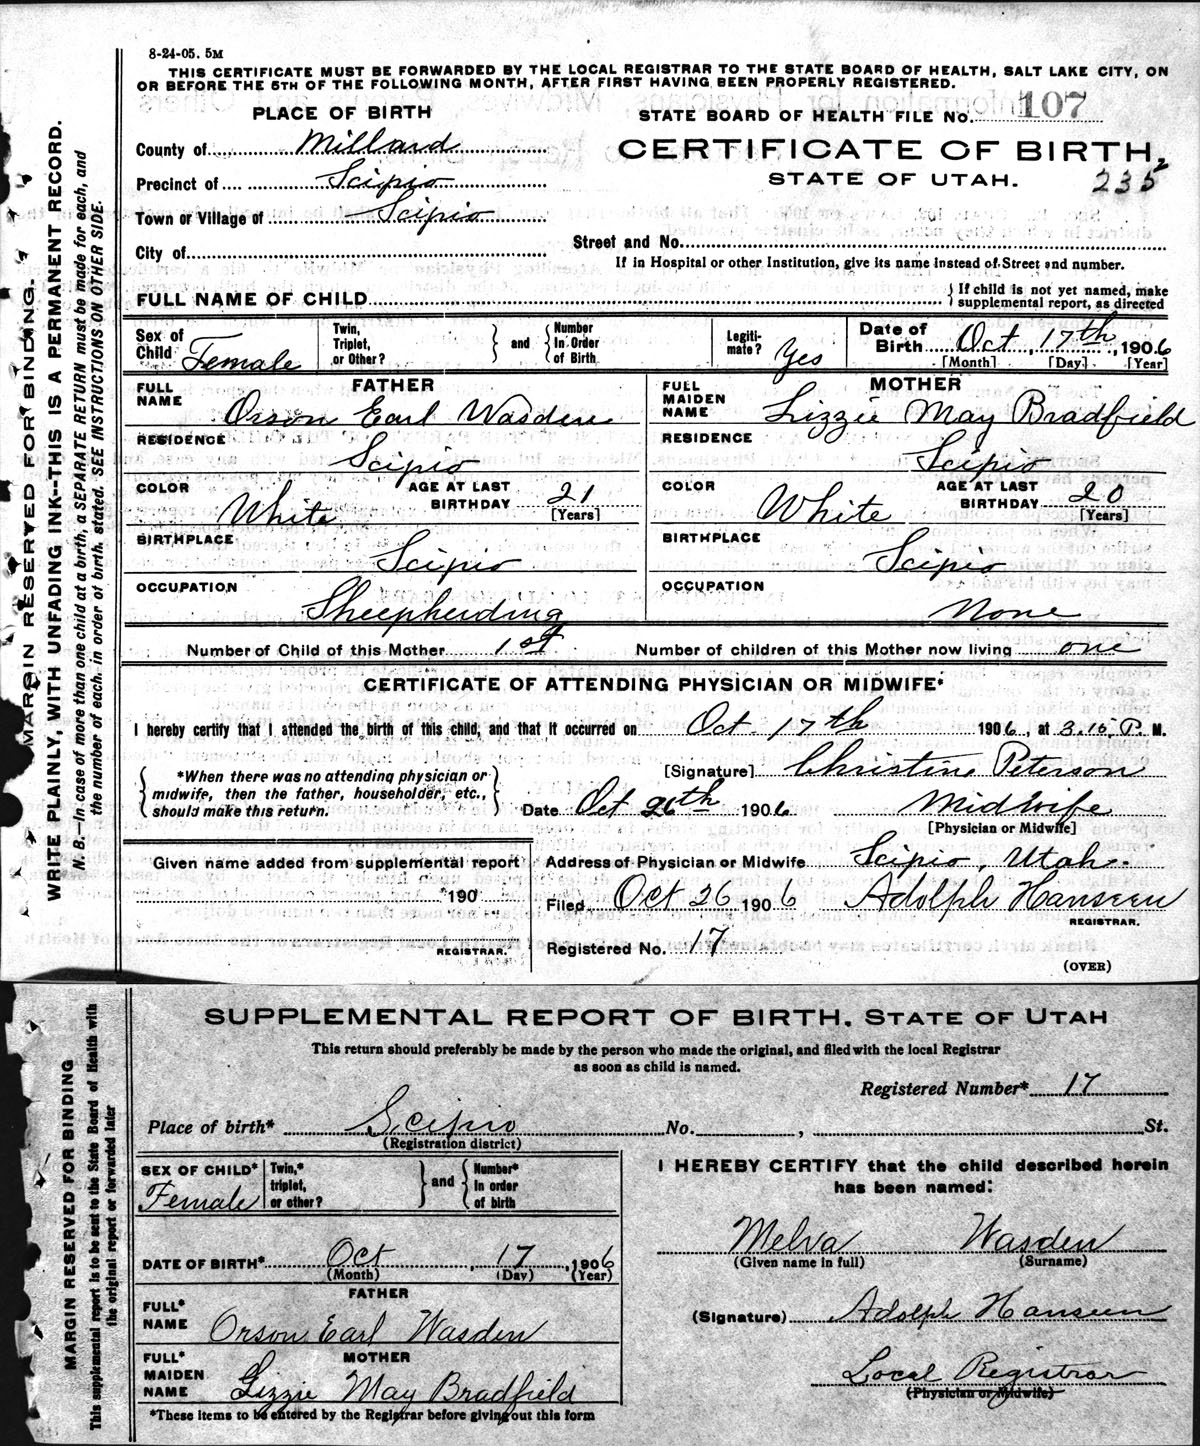 8-24-05. 5M
THIS CERTIFICATE MUST BE FORWARDED BY THE LOCAL REGISTRAR TO THE STATE BOARD OF HEALTH, SALT LAKE CITY, ON
OR BEFORE THE 5TH OF THE FOLLOWING MONTH, AFTER FIRST HAVING BEEN PROPERLY REGISTERED.
MARGIN RESERVED FOR BINDING.
WRITE PLAINLY, WITH UNFADING INK--THIS IS A PERMANENT RECORD.
N. B.--In case of more than one child at a birth, a SEPARATE RETURN must be made for each, and
the number of each, in order of birth, stated. SEE INSTRUCTIONS ON OTHER SIDE.
PLACE OF BIRTH
STATE BOARD OF HEALTH FILE No. 107
County of Millard
CERTIFICATE OF BIRTH,
Precinct of Scipio
STATE OF UTAH. 235
Town or Village of Scipio
City of
Street and No.
If in Hospital or other Institution, give its name instead of Street and number.
FULL NAME OF CHILD
{ If child is not yet named, make
supplemental report, as directed
Sex of Child Female
Twin, Triplet, or Other? } and { Number In Order of Birth
Legiti-mate? Yes
Date of Birth Oct, 17th, 1906
[Month] [Day] [Year]
FATHER MOTHER
FULL NAME Orson Earl Wasden
FULL MAIDEN NAME Lizzie May Bradfield
RESIDENCE Scipio
RESIDENCE Scipio
COLOR White AGE AT LAST BIRTHDAY 21 [Years]
COLOR White AGE AT LAST BIRTHDAY 20 [Years]
BIRTHPLACE Scipio
BIRTHPLACE Scipio
OCCUPATION Sheepherding
OCCUPATION None
Number of Child of this Mother 1st Number of children of this Mother now living one
CERTIFICATE OF ATTENDING PHYSICIAN OR MIDWIFE*
I hereby certify that I attended the birth of this child, and that it occurred on Oct. 17th 1906, at 3.15 P. M.
{ *When there was no attending physician or
midwife, then the father, householder, etc.,
should make this return. }
[Signature] Christine Peterson
Date Oct 26th 1906 Midwife
[Physician or Midwife]
Given name added from supplemental report
190
REGISTRAR.
Address of Physician or Midwife Scipio, Utah.
Filed Oct 26 1906 Adolph Hanseen
REGISTRAR.
Registered No. 17
(OVER)
MARGIN RESERVED FOR BINDING
This supplemental report is to be sent to the State Board of Health with
the original report or forwarded later
SUPPLEMENTAL REPORT OF BIRTH. STATE OF UTAH
This return should preferably be made by the person who made the original, and filed with the local Registrar
as soon as child is named.
Registered Number* 17
Place of birth* Scipio No. , St.
(Registration district)
SEX OF CHILD* Female
Twin,* triplet, or other? } and { Number* In order of birth
DATE OF BIRTH* Oct, 17, 1906
(Month) (Day) (Year)
FATHER
FULL* NAME Orson Earl Wasden
MOTHER
FULL* MAIDEN NAME Lizzie May Bradfield
*These items to be entered by the Registrar before giving out this form
I HEREBY CERTIFY that the child described herein
has been named:
Melva Wasden
(Given name in full) (Surname)
(Signature) Adolph Hanseen
Local Registrar
(Physician or Midwife)